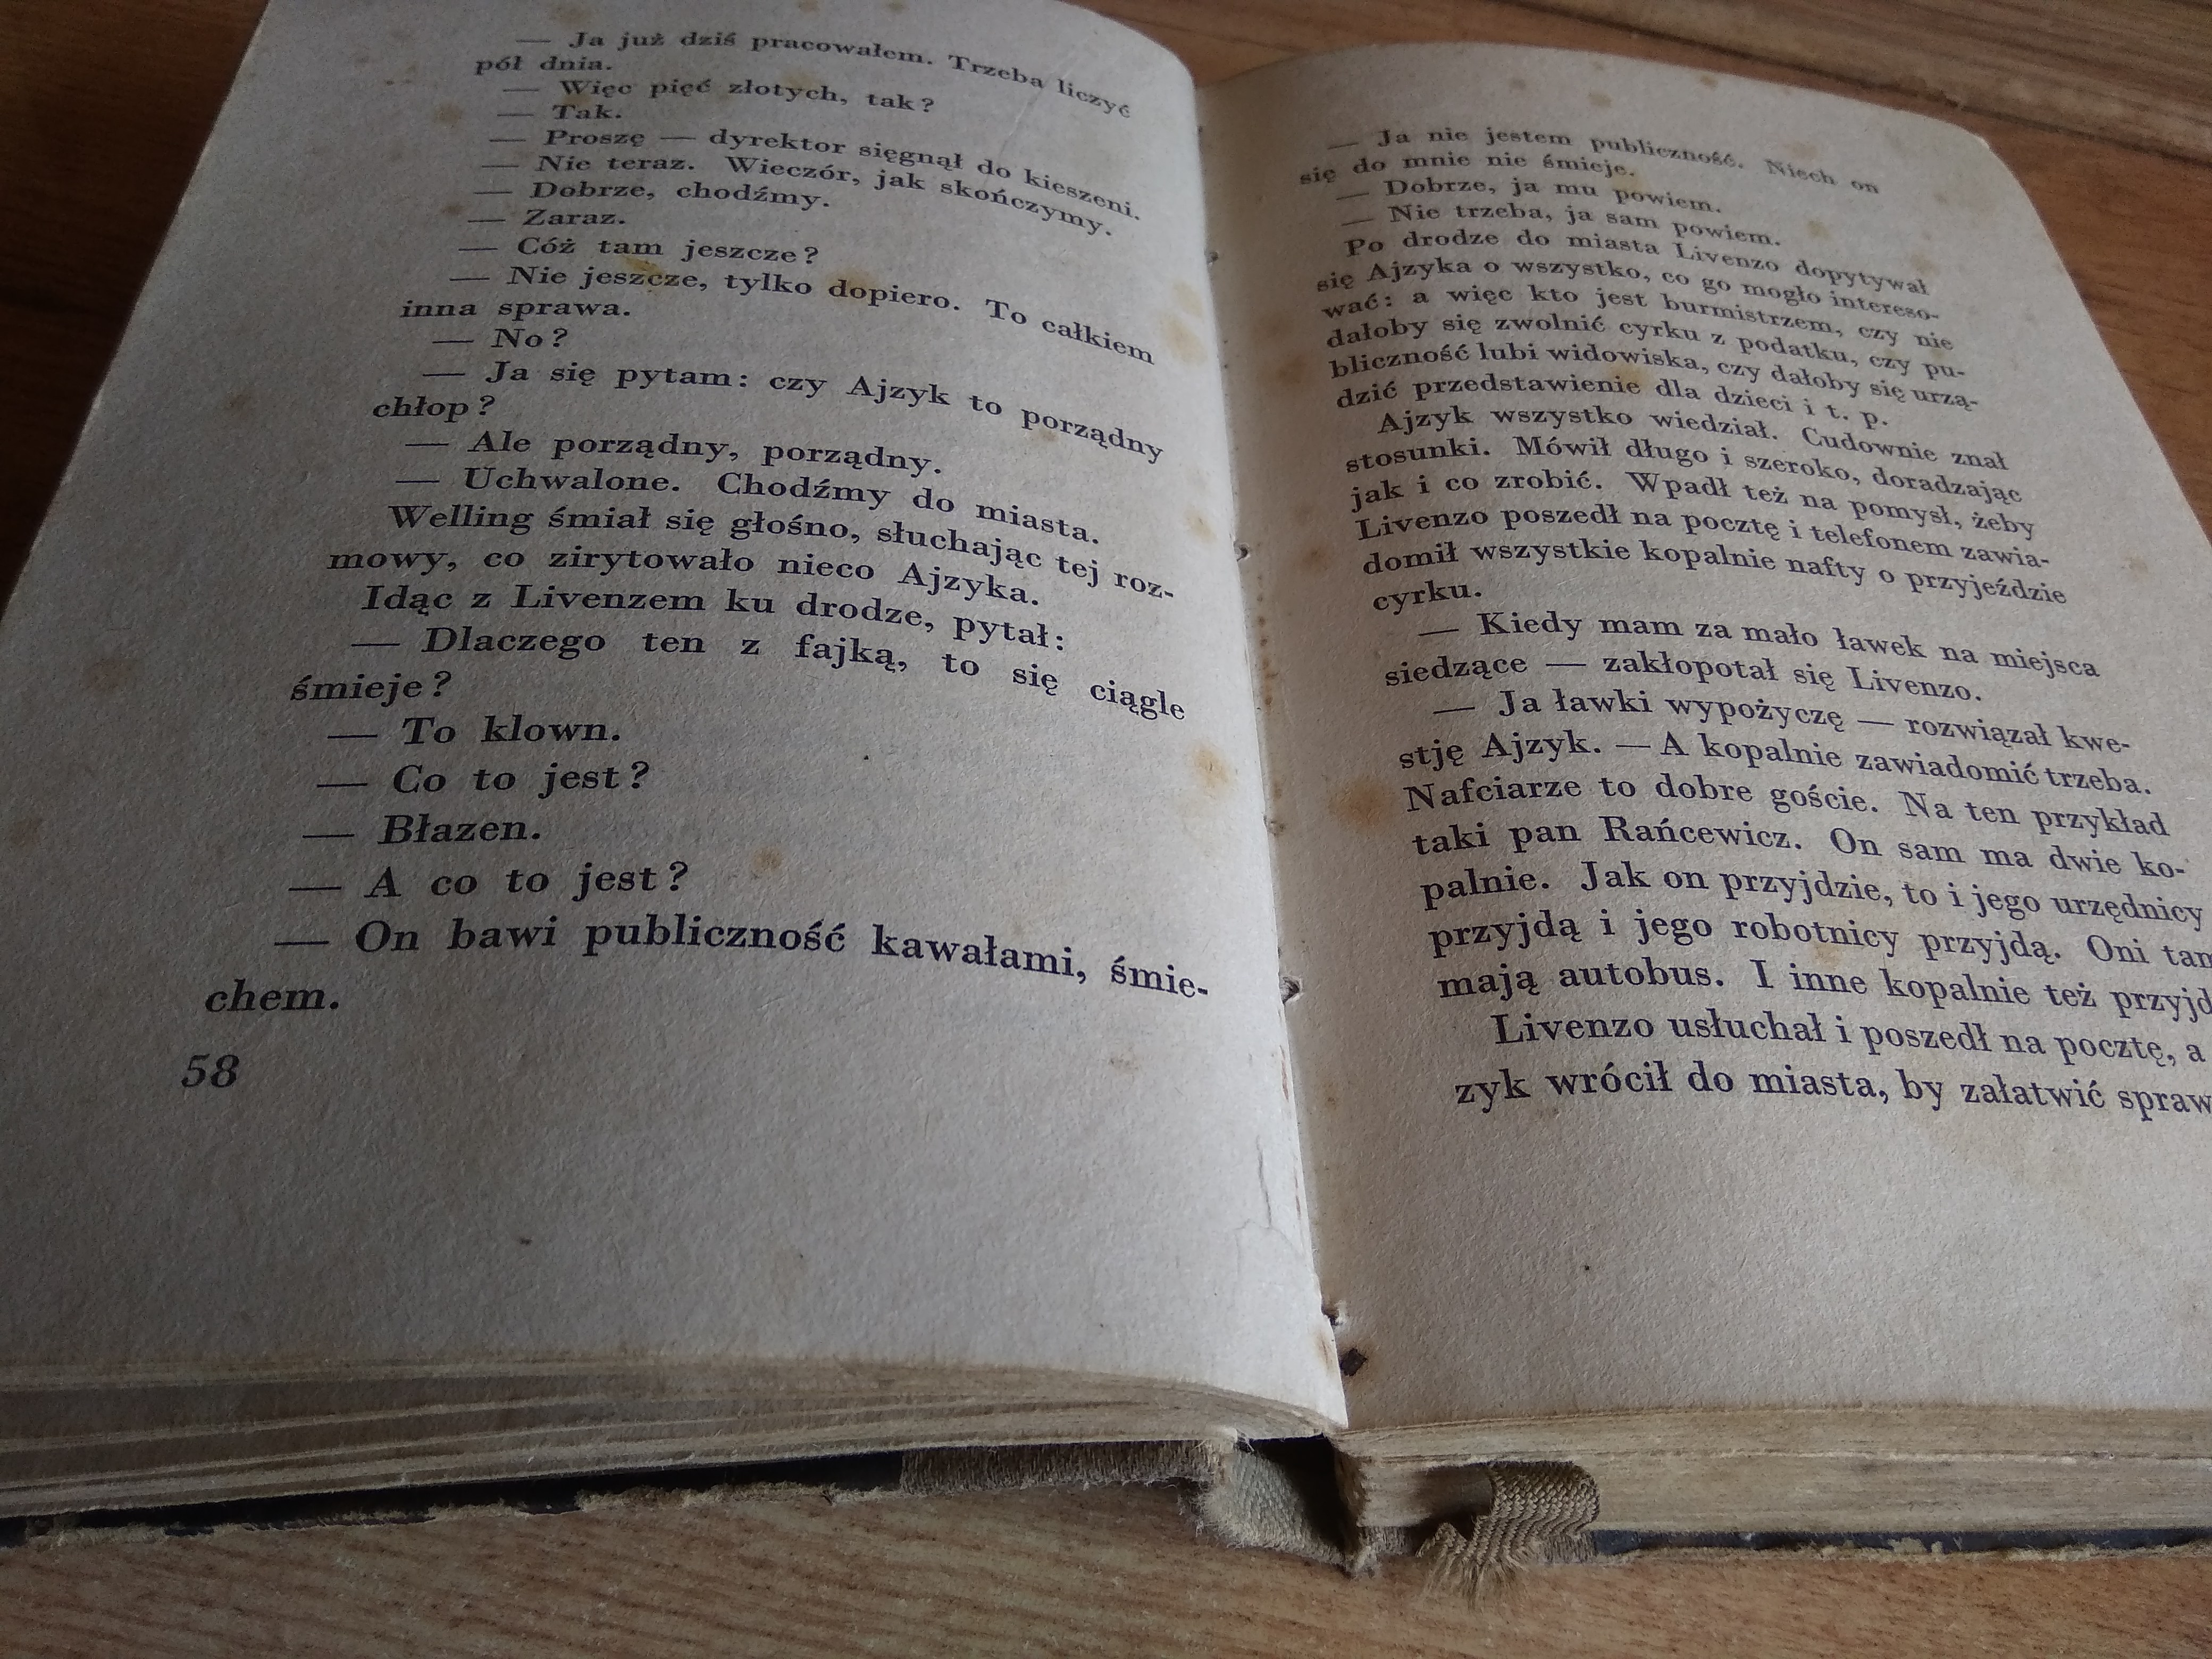 — Ja już dziś pracowałem. Trzeba liczyć
pół dnia.
— Więc pięć złotych, tak?
— Tak.
— Proszę — dyrektor sięgnął do kieszeni.
— Nie teraz. Wieczór, jak skończymy.
— Dobrze, chodźmy.
— Zaraz.
— Cóż tam jeszcze?
— Nie jeszcze, tylko dopiero. To całkiem
inna sprawa.
— No?
— Ja się pytam: czy Ajzyk to porządny
chłop?
— Ale porządny, porządny.
— Uchwalone. Chodźmy do miasta.
Welling śmiał się głośno, słuchając tej roz-
mowy, co zirytowało nieco Ajzyka.
Idąc z Livenzem ku drodze, pytał:
— Dlaczego ten z fajką, to się ciągle
śmieje?
— To klown.
— Co to jest?
— Błazen.
— A co to jest?
— On bawi publiczność kawałami, śmie-
chem.
58
— Ja nie jestem publiczność. Niech on
się do mnie nie śmieje.
— Dobrze, ja mu powiem.
— Nie trzeba, ja sam powiem.
Po drodze do miasta Livenzo dopytywał
się Ajzyka o wszystko, co go mogło intereso-
wać: a więc kto jest burmistrzem, czy nie
dałoby się zwolnić cyrku z podatku, czy pu-
bliczność lubi widowiska, czy dałoby się urzą-
dzić przedstawienie dla dzieci i t. p.
Ajzyk wszystko wiedział. Cudownie znał
stosunki. Mówił długo i szeroko, doradzając
jak i co zrobić. Wpadł też na pomysł, żeby
Livenzo poszedł na pocztę i telefonem zawia-
domił wszystkie kopalnie nafty o przyjeździe
cyrku.
— Kiedy mam za mało ławek na miejsca
siedzące — zakłopotał się Livenzo.
— Ja ławki wypożyczę — rozwiązał kwe-
stję Ajzyk. — A kopalnie zawiadomić trzeba.
Nafciarze to dobre goście. Na ten przykład
taki pan Rańcewicz. On sam ma dwie ko-
palnie. Jak on przyjdzie, to i jego urzędnicy
przyjdą i jego robotnicy przyjdą. Oni tam
mają autobus. I inne kopalnie też przyjd
Livenzo usłuchał i poszedł na pocztę, a
zyk wrócił do miasta, by załatwić spraw